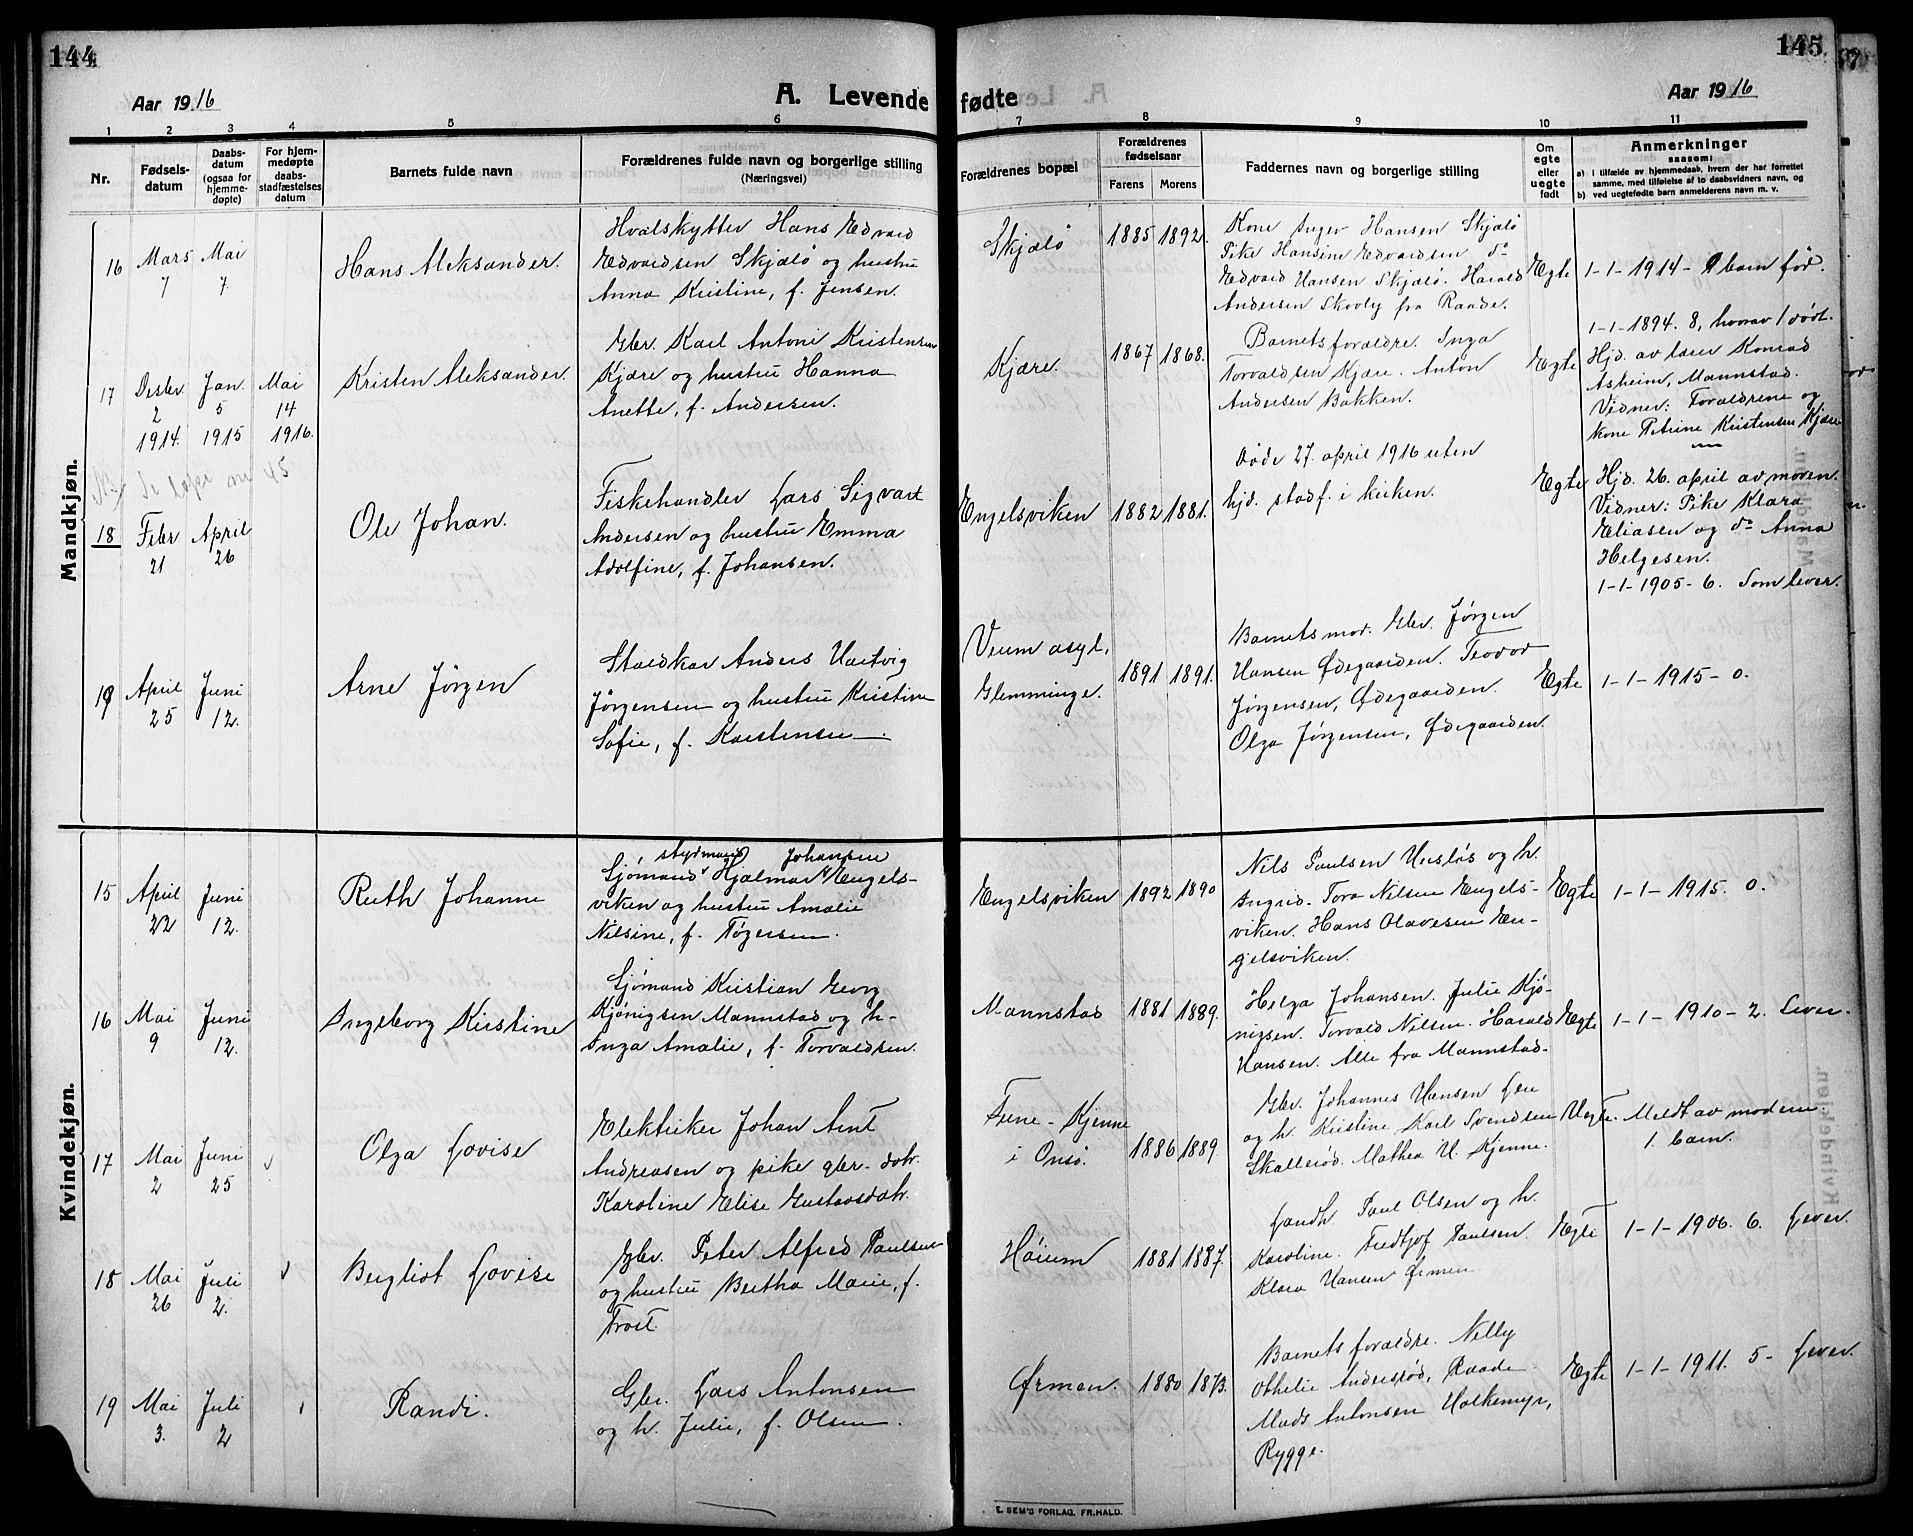 144
145
Aar 1916
A. Levende fødte
Aar 1916
1 2 3 4 5 6 7 8 9 10 11
Nr.
Fødsels-
datum
Daabs-
datum
(ogsaa for
hjemme-
døpte)
For hjem-
medøpte
daabs-
stadfæstelses
datum
Barnets fulde navn
Forældrenes fulde navn og borgerlige stilling
(Næringsvei)
Forældrenes bopæl
Forældrenes
fødselsaar
Farens
Morens
Faddernes navn og borgerlige stilling
Om
egte
eller
uegte
født
Anmerkninger
saasom:
a) i tilfælde av hjemmedaab, hvem der har forrettet
samme, med tilføielse af to daabsvidners navn, og
b) ved uegtefødte barn anmelderens navn m. v.
Mandkjøn.
16
Mars
7
Mai
7.
Hans Aleksander.
Hvalskytter Hans Edvard
Edvardsen Skjælø og hustru
Anna Kristine, f. Jensen.
Skjælø
1885 1892.
Kone Inger Hansen Skjælø
Pike Hansine Edvardsen do
Edvard Hansen Skjælø. Harald
Andersen Skovly fra Raade.
Egte
1-1-1914- 1 barn før.
17
Desbr
2
1914.
Jan.
5
1915
Mai
14
1916.
Kristen Aleksander.
Gbr. Karl Antoni Kristensen
Kjære og hustru Hanna
Anette, f. Andersen.
Kjære.
1867 1868.
Barnets forældre. Inga
Torvaldsen Kjære. Anton
Andersen Bakken.
Egte
1-1-1894. 8, hvorav 1 dødt.
Hjd. av lærer Konrad
Asheim, Mannstad.
Vidner: Forældrene og
kone Petrine Kristensen Kjære
18
Febr
21
April
26
Ole Johan.
Fiskehandler Lars Sigvart
Andersen og hustru Emma
Adolfine, f. Johansen.
Engelsviken
1882 1881.
Døde 27. april 1916 uten
hjd. stadf. i kirken.
Egte
Hjd. 26. april av moren.
Vidner: Pike Klara
Eliasen og do Anna
Helgesen.
1-1-1905-6. Som lever.
19
April
25
Juni
12.
Arne Jørgen
Staldkar Anders Hartvig
Jørgensen og hustru Kristine
Sofie, f. Karstensen.
Veum asyl,
Glemminge.
1891 1891.
Barnets mor. Gbr. Jørgen
Hansen Ødegaarden. Teodor
Jørgensen, Ødegaarden.
Olga Jørgensen, Ødegaarden.
Egte
1-1-1915-0.
Kvindekjøn.
15
April
22
Juni
12.
Ruth Johanne
styrmand Johansen
Sjømand Hjalmar Engels-
viken og hustru Amalie
Nilsine, f. Tøgersen.
Engelsviken
1892 1890
Nils Paulsen Husløs og h.
Ingrid. Tora Nilsen Engels-
viken. Hans Olavesen En-
gelsviken.
Egte
1-1-1915. 0.
16
Mai
9
Juni
12.
Ingeborg Kirstine
Sjømand Kristian Georg
Kjønigsen Mannstad og h-
Inga Amalie, f. Torvaldsen.
Mannstad
1881 1889.
Helga Johansen. Julie Kjø-
nigsen. Torvald Nilsen. Harald
Hansen. Alle fra Mannstad-
Egte
1-1-1910-2. Lever.
17
Mai
2
Juni
25
Olga Lovise
Elektriker Johan Arnt
Andreasen og pike gbr. datr.
Karoline Elise Gustavsdatr.
Tune- Kjenne
i Onsø.
1886 1889.
Gbr. Johannes Hansen Lere
og h. Kristine Karl Svendsen
Skallerød. Mathea H. Kjenne.
Uegte.
Meldt av moderen.
1. barn.
18
Mai
26
Juli
2.
Bergliot Lovise
Gbr. Peter Alfred Paulsen
og hustru Bertha Marie, f.
Frost.
Høium
1881 1887.
Landh. Paul Olsen og h.
Karoline. Fredtjof Paulsen.
Klara Hansen Ørmen
Egte
1-1-1906. 6. Lever.
19
Mai
3.
Juli
2
Randi.
Gbr. Lars Antonsen
og h. Julie, f. Olsen.
Ørmen.
1880 1873.
Barnets forældre. Nelly
Othelie Andersrød, Raade.
Mads Antonsen Halkemyr,
Rygge.
Egte
1-1-1911. 5- Lever.
E. SEM'S FORLAG, FR.HALD.